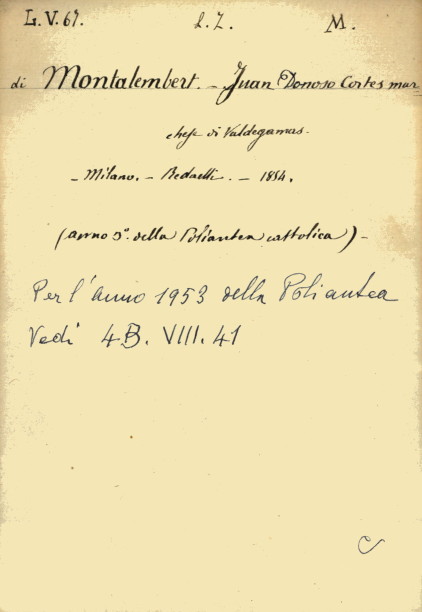 L.V.67. 2.7. M.
di Montalembert. - Juan Donoso Cortes mar-
chese di Valdegamas.
- Milano. - Redaelli. - 1854.
(anno 3º. della Poliantea cattolica) -
Per l'anno 1953 della Poliantea
Vedi 4.B. VIII. 41